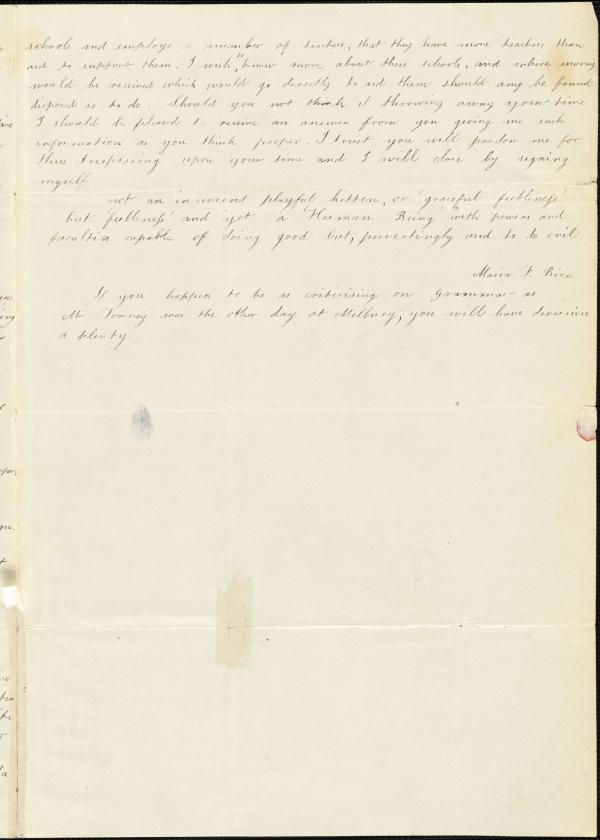 schools and employs a number of teachers, that they have more teachers than
aid to support them. I wish to know more about these schools, and where money
would be received which would go directly to aid them should any be found
disposed so to do. Should you not think it throwing away your time
I should be pleased to receive an answer from you giving me such
information as you think proper. I trust you will pardon me for
thus trespassing upon your time and I will close by signing
myself
not an innocent playful kitten, or 'graceful feebleness'
but feebleness' and yet a 'Human Being' with powers and
faculties capable of doing good but, pervertingly used to do evil
Maria F. Rice
If you happen to be as criticising on Grammar as
Mr was the other day at Milbury, you will have diversion
a plenty